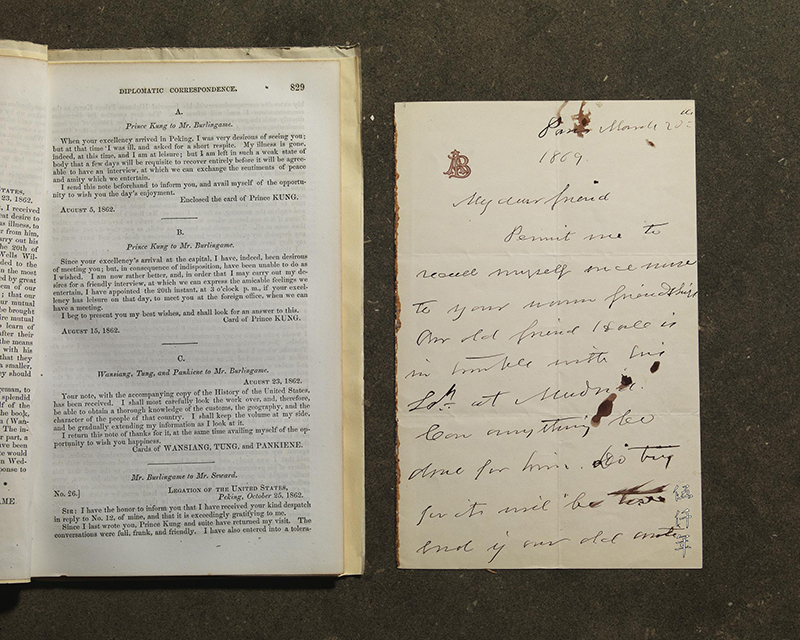 DIPLOMATIC CORRESPONDENCE. 829
A.
Prince Kung to Mr. Burlingame.
When your excellency arrived in Peking, I was very desirous of seeing you;
but at that time I was ill, and asked for a short respite. My illness is gone,
indeed, at this time, and I am at leisure; but I am left in such a weak state of
body that a few days will be requisite to recover entirely before it will be agree-
able to have an interview, at which we can exchange the sentiments of peace
and amity which we entertain.
I send this note beforehand to inform you, and avail myself of the opportu-
nity to wish you the day's enjoyment.
Enclosed the card of Prince KUNG.
AUGUST 5, 1862.
B.
Prince Kung to Mr. Burlingame.
Since your excellency's arrival at the capital, I have, indeed, been desirous
of meeting you; but, in consequence of indisposition, have been unable to do as
I wished. I am now rather better, and, in order that I may carry out my de-
sires for a friendly interview, at which we can express the amicable feelings we
entertain, I have appointed the 20th instant, at 3 o'clock p. m., if your excel-
lency has leisure on that day, to meet you at the foreign office, when we can
have a meeting.
I beg to present you my best wishes, and shall look for an answer to this.
Card of Prince KUNG.
AUGUST 15, 1862.
C.
Wansiang, Tung, and Pankiene to Mr. Burlingame.
AUGUST 23, 1862.
Your note, with the accompanying copy of the History of the United States,
has been received. I shall most carefully look the work over, and, therefore,
be able to obtain a thorough knowledge of the customs, the geography, and the
character of the people of that country. I shall keep the volume at my side,
and be gradually extending my information as I look at it.
I return this note of thanks for it, at the same time availing myself of the op-
portunity to wish you happiness.
Cards of WANSIANG, TUNG, and PANKIENE.
Mr. Burlingame to Mr. Seward.
No. 26.] LEGATION OF THE UNITED STATES,
Peking, October 25, 1862.
SIR: I have the honor to inform you that I have received your kind despatch
in reply to No. 12, of mine, and that it is exceedingly gratifying to me.
Since I last wrote you, Prince Kung and suite have returned my visit. The
conversations were full, frank, and friendly. I have also entered into a tolera-
AB
Paris March
1869
My dear friend
Permit me to
recall myself once more
to your warm friendship
Our old friend Hale is
in trouble with his
at Madrid.
Can anything be
done for him. Do try
for its will be
and if our old